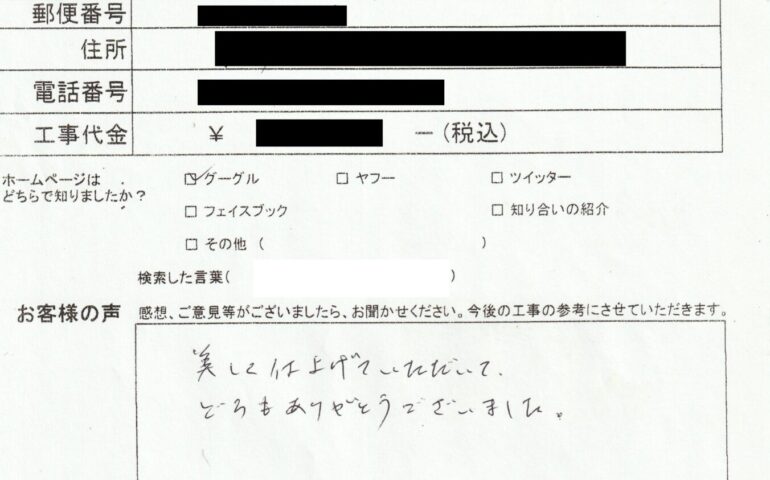 郵便番号
住所
電話番号
工事代金 ¥ ー(税込)
ホームページは
どちらで知りましたか?
☑ グーグル □ ヤフー □ ツイッター
□ フェイスブック □ 知り合いの紹介
□ その他 ( )
検索した言葉( )
お客様の声 感想、ご意見等がございましたら、お聞かせください。今後の工事の参考にさせていただきます。
美しく仕上げていただいて、
どうもありがとうございました。